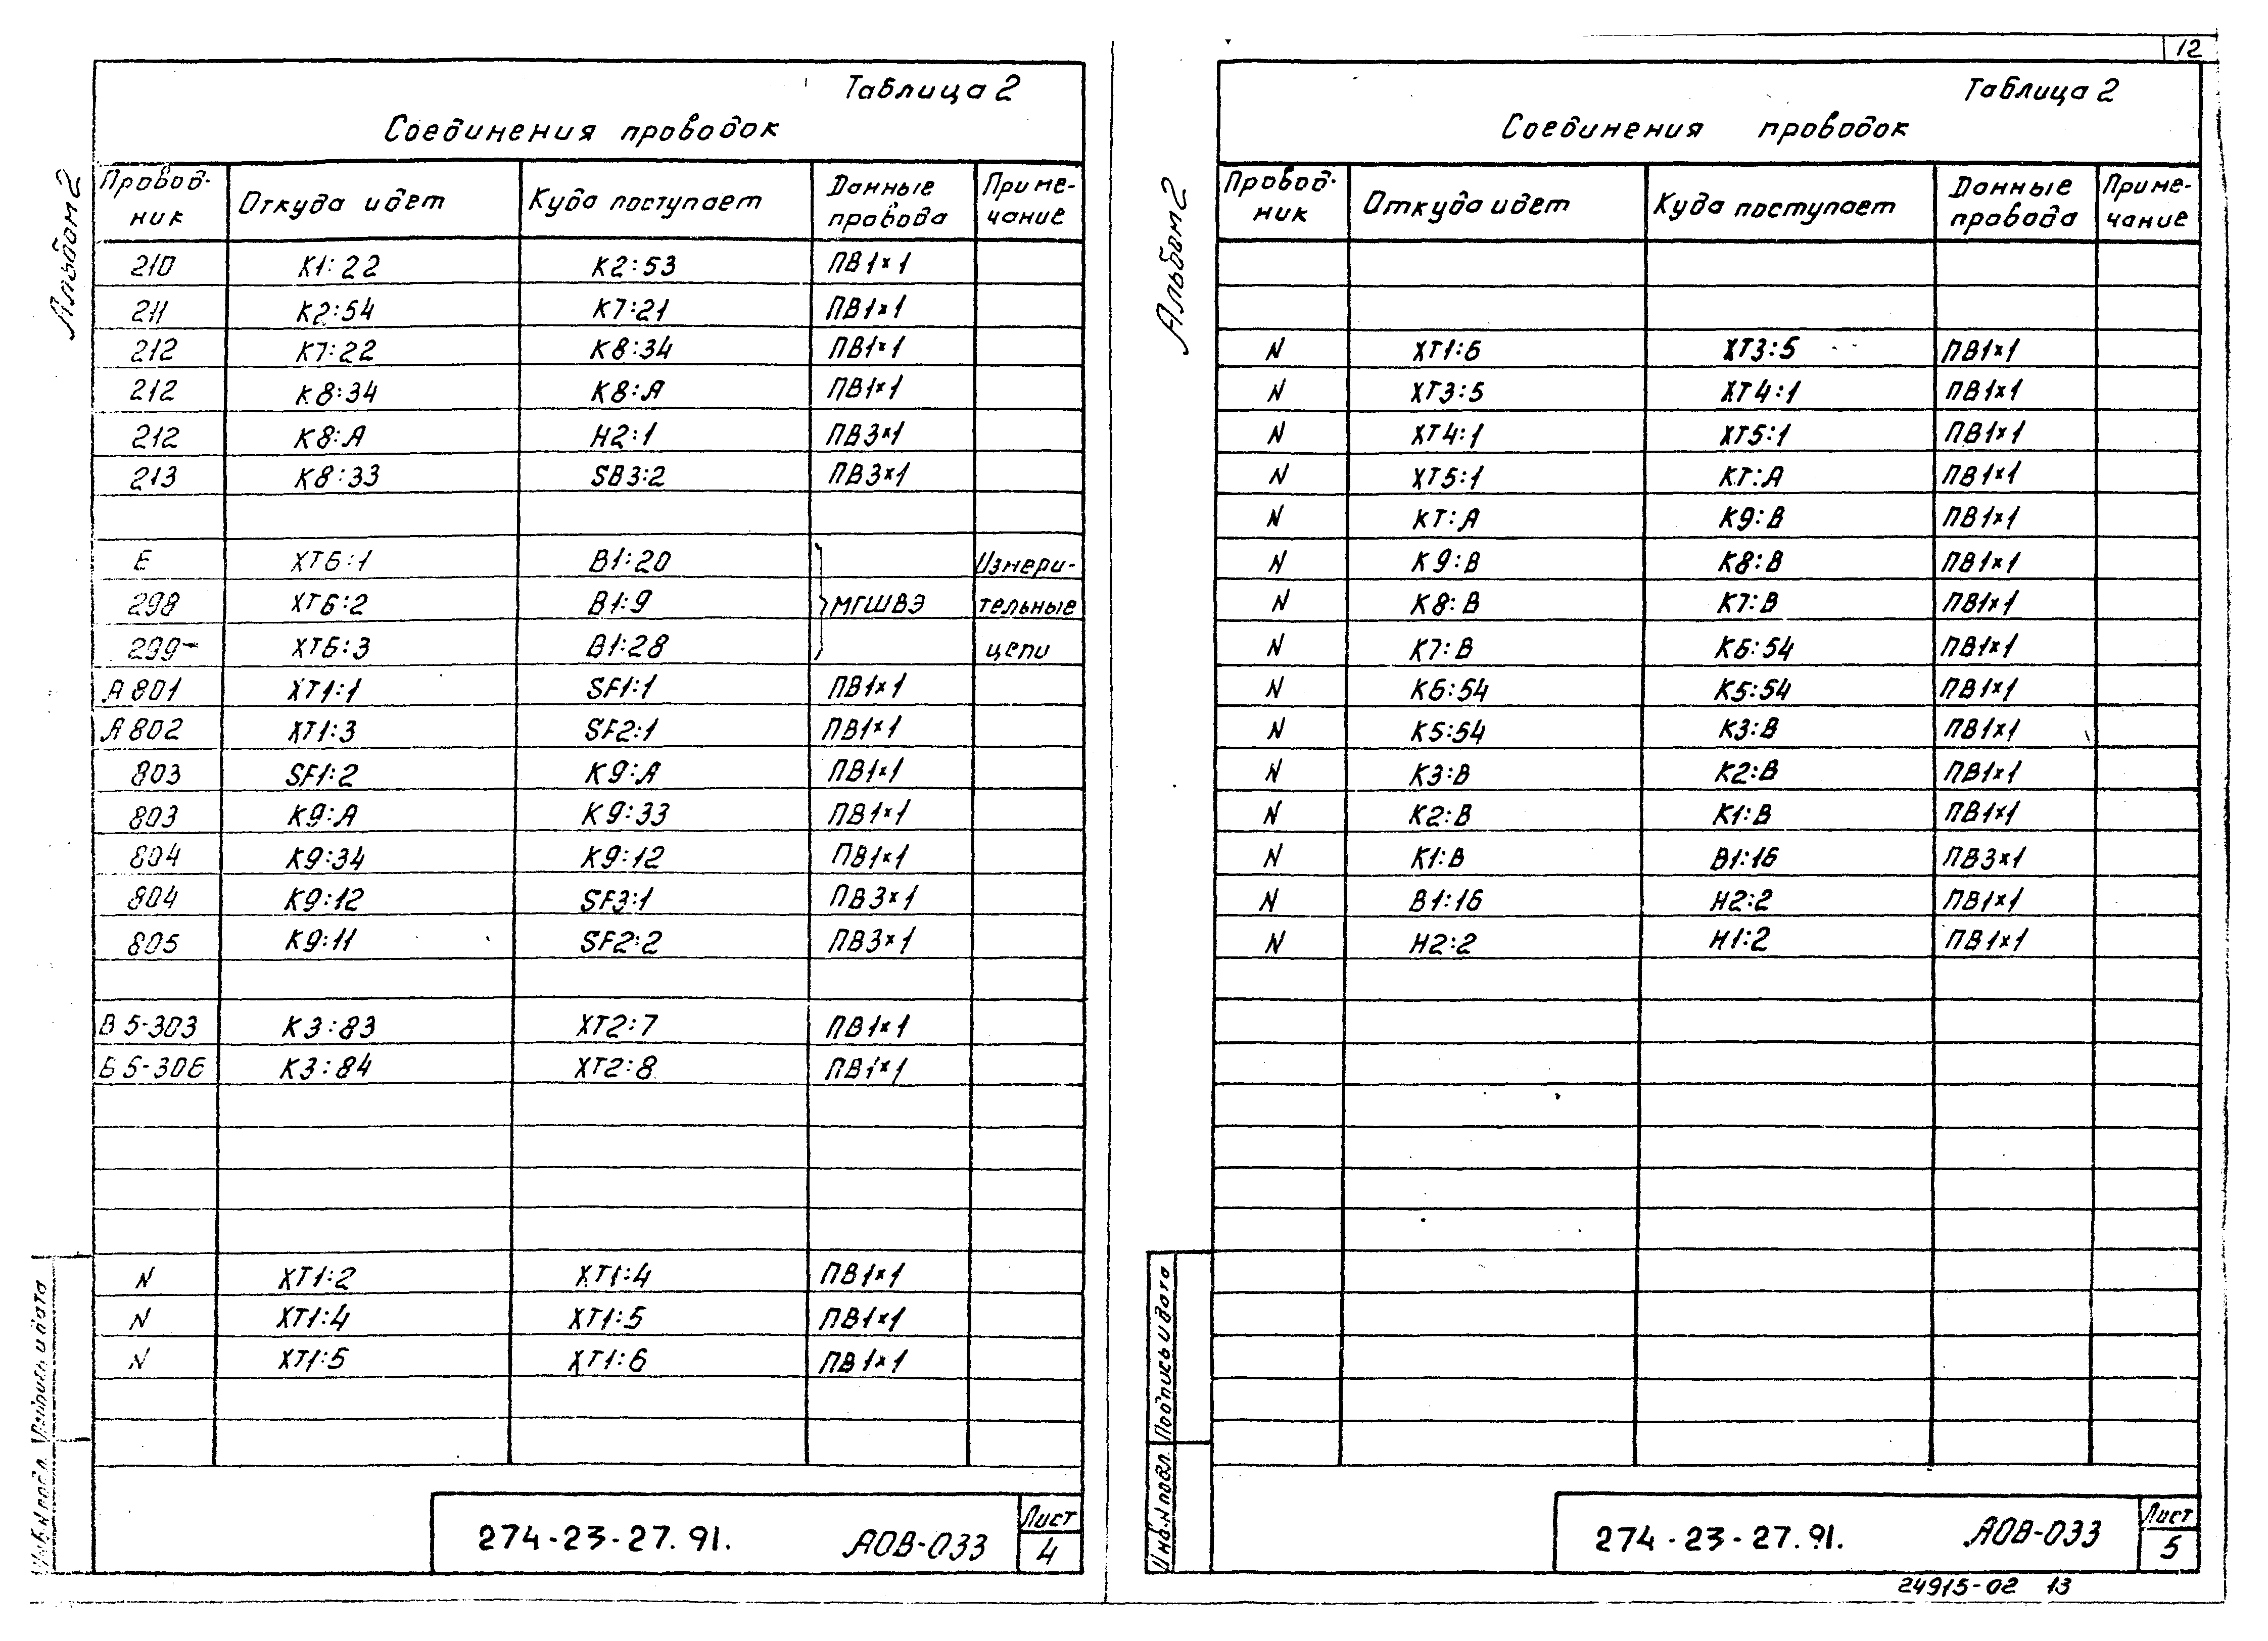 12
Альбом 2
Таблица 2
Соединения проводок
Провод-ник Откуда идет Куда поступает Данные провода Приме-чание
210 К1:22 К2:53 ПВ1×1
211 К2:54 К7:21 ПВ1×1
212 К7:22 К8:34 ПВ1×1
212 К8:34 К8:А ПВ1×1
212 К8:А Н2:1 ПВ3×1
213 К8:33 SB3:2 ПВ3×1
Е ХТ6:1 В1:20 Измери-
298 ХТ6:2 В1:9 МГШВЭ тельные
299 ХТ6:3 В1:28 цепи
А801 ХТ1:1 SF1:1 ПВ1×1
А802 ХТ1:3 SF2:1 ПВ1×1
803 SF1:2 К9:А ПВ1×1
803 К9:А К9:33 ПВ1×1
804 К9:34 К9:12 ПВ1×1
804 К9:12 SF3:1 ПВ3×1
805 К9:11 SF2:2 ПВ3×1
В5-303 К3:83 ХТ2:7 ПВ1×1
В5-306 К3:84 ХТ2:8 ПВ1×1
N ХТ1:2 ХТ1:4 ПВ1×1
N ХТ1:4 ХТ1:5 ПВ1×1
N ХТ1:5 ХТ1:6 ПВ1×1
Инв. N подл. Подпись и дата
274-23-27.91. АОВ-033 Лист 4
Альбом 2
Таблица 2
Соединения проводок
Провод-ник Откуда идет Куда поступает Данные провода Приме-чание
N ХТ1:6 ХТ3:5 ПВ1×1
N ХТ3:5 ХТ4:1 ПВ1×1
N ХТ4:1 ХТ5:1 ПВ1×1
N ХТ5:1 КТ:А ПВ1×1
N КТ:А К9:В ПВ1×1
N К9:В К8:В ПВ1×1
N К8:В К7:В ПВ1×1
N К7:В К6:54 ПВ1×1
N К6:54 К5:54 ПВ1×1
N К5:54 К3:В ПВ1×1
N К3:В К2:В ПВ1×1
N К2:В К1:В ПВ1×1
N К1:В В1:16 ПВ3×1
N В1:16 Н2:2 ПВ1×1
N Н2:2 Н1:2 ПВ1×1
Инв. N подл. Подпись и дата
274-23-27.91. АОВ-033 Лист 5
24915-02 13